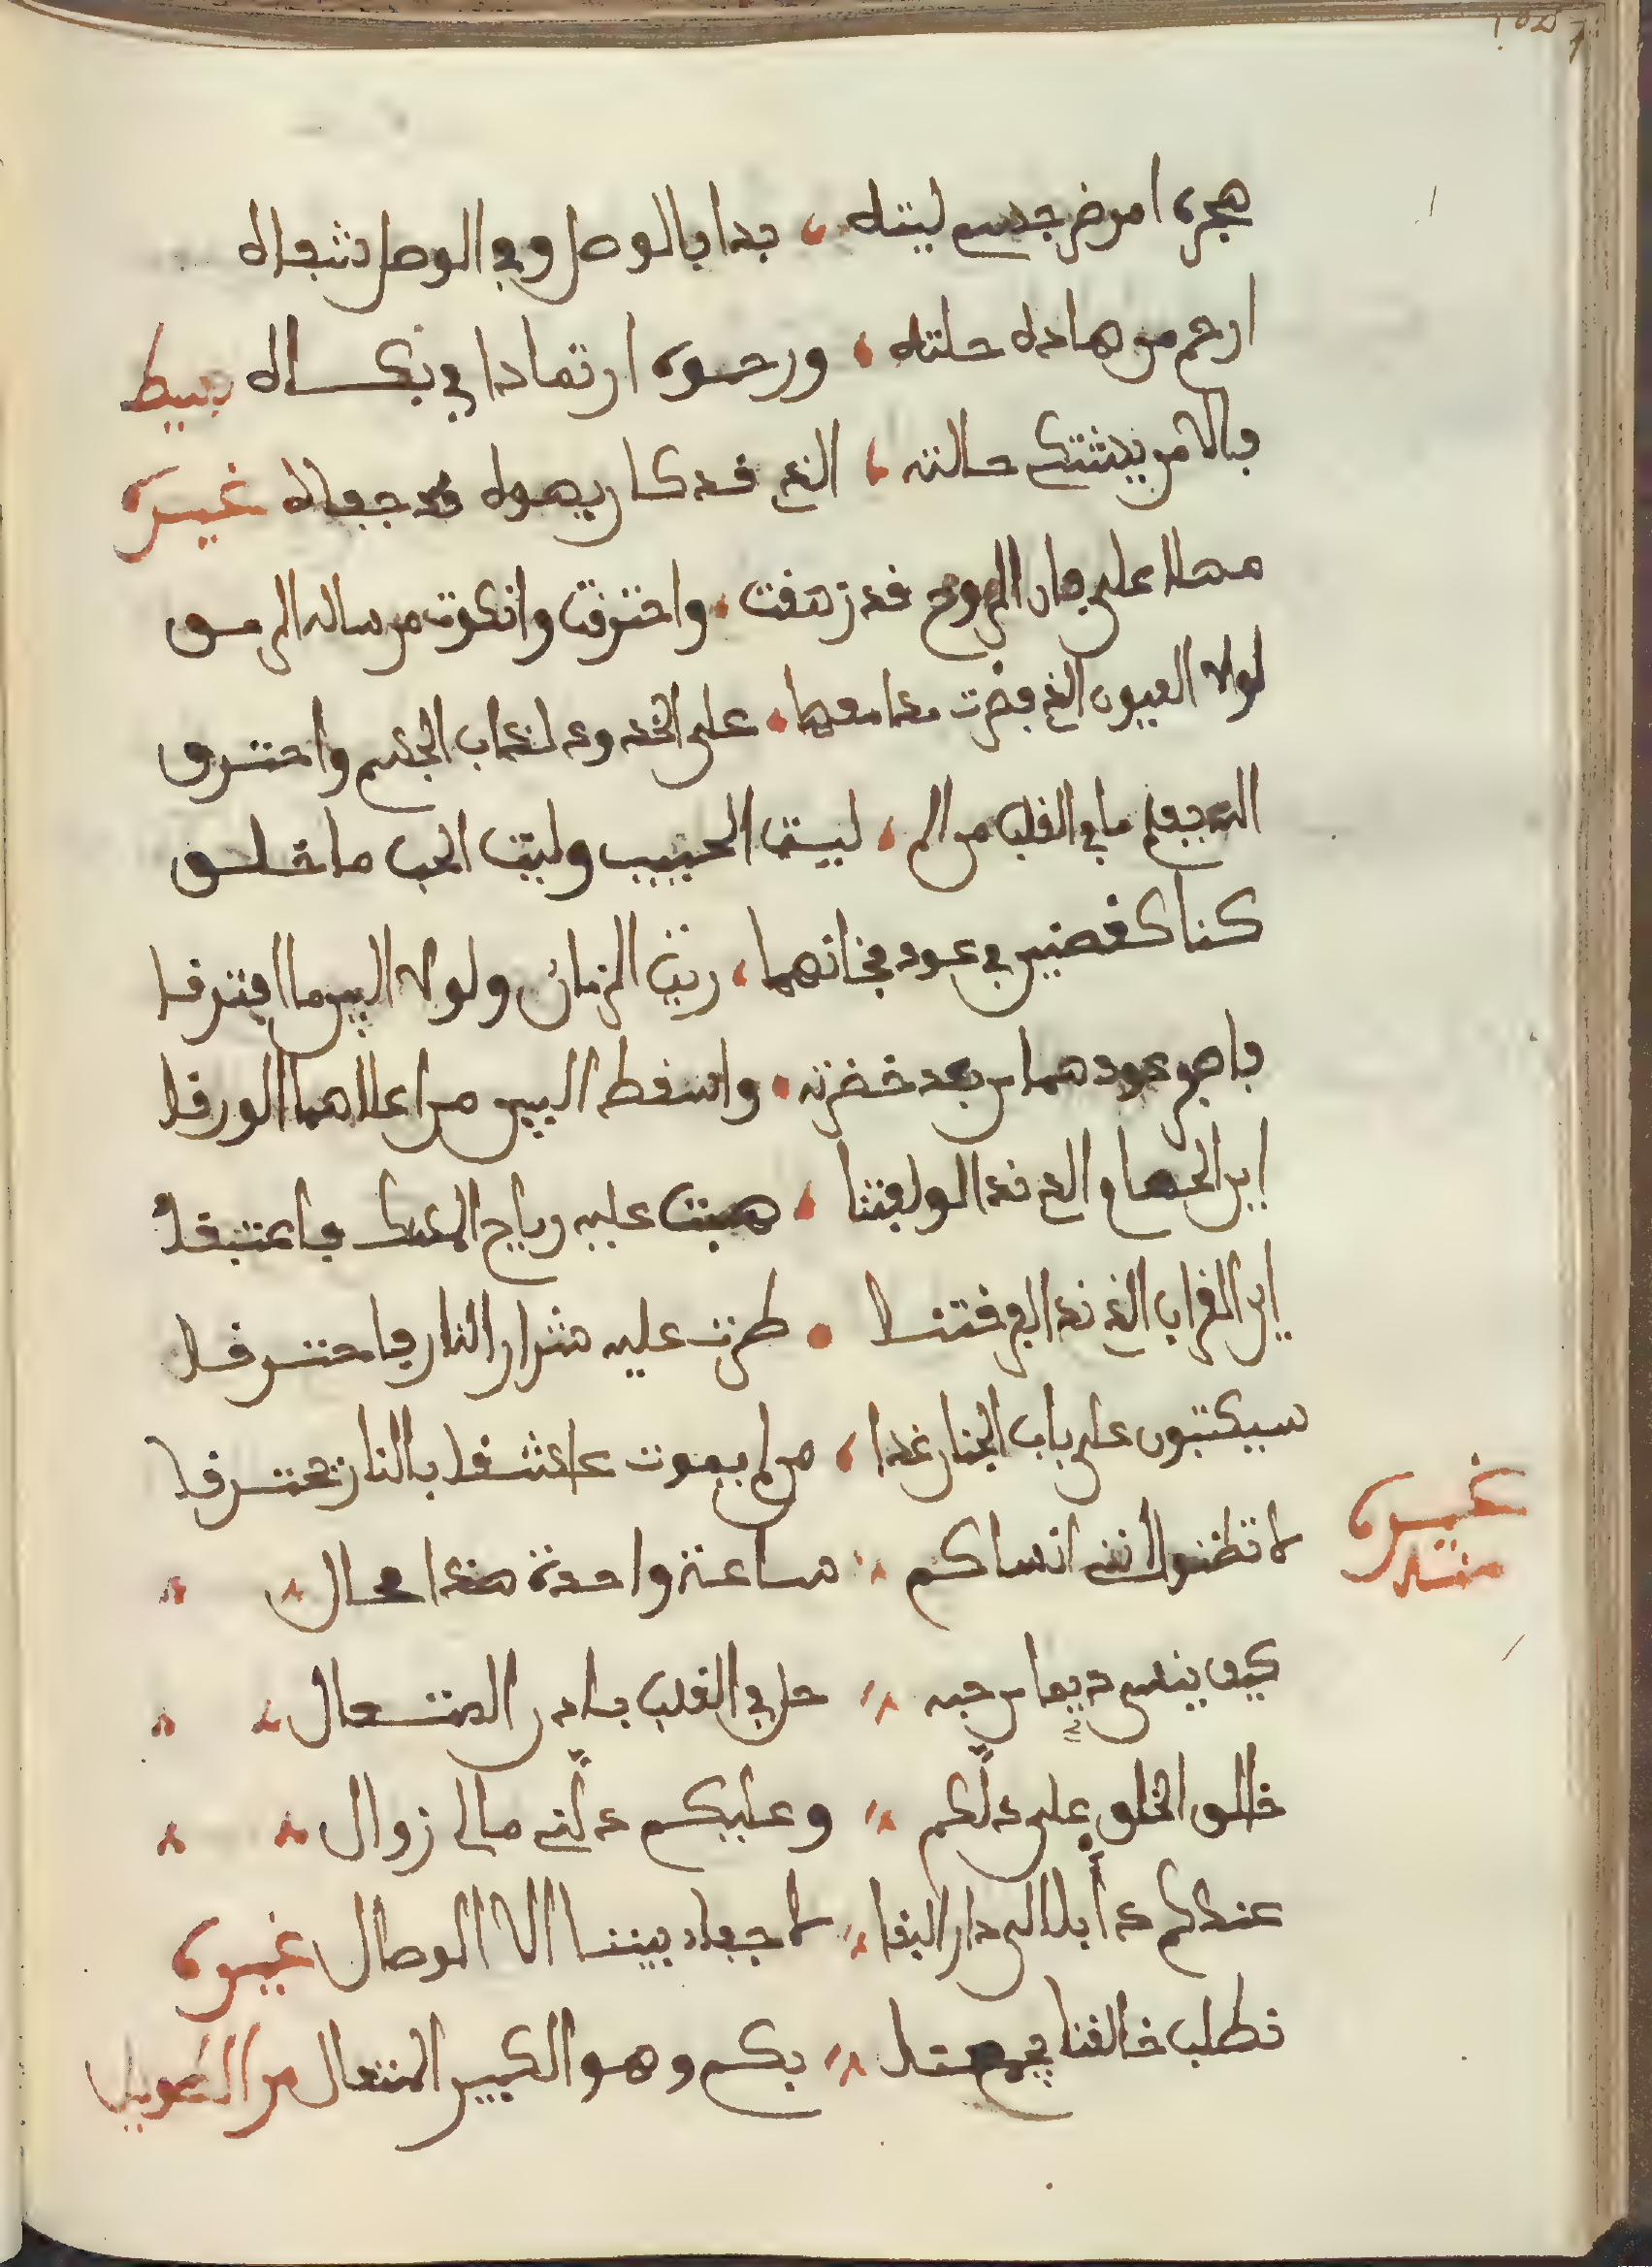 هجره امرض جسم ليته ، بدا بالوصل وفي الوصل شفاه
ارحم من هاذه حلته ، ورحوه ارتمادا في بكاه بسيط
فالامر يشتكى حالته ، الذي قد كان يهواه قد جفاه غيره
مهلا على هاذ الروح قد زهقت ، واحترقت وانكوت من ساله الرمق
لولا العيون الذي فضت مدامعها ، على الخدود لذاب الجسم واحترق
الله يعلم ما في القلب من الم ، ليت الحبيب وليت الحب ما خلق
كنا كغصنين في عود فخانهما ، ريب الزمان ولولا البين ما افترقا
فاصفر عودهما من بعد خضرته ، واسقط البين من اعلاهما الورقا
اين الحمام الذي نذا لولفتنا ، هبت عليه رياح المسك فاعتبقا
اين الغراب الذي نذا لفرقتنا ، طرت عليه شرار النار فاحترقا
سيكتبون على باب الجنان غدا ، من لم يموت عاشقا بالنار يحترقا
غيره منه
لا تظنوا انني انساكم ، ساعة واحدة هذا محال
كيف ينسى ديما من حبه ، حل في القلب باذن المتعال
خالق الخلق على دلكم ، وعليكم دلني مالي زوال
عندكم ابدا الى دار البقا ، لا جفاء بيننا الا الوصال غيره
نطلب خالقنا يجمعنا ، بكم وهو الكبير المتعال من الطويل